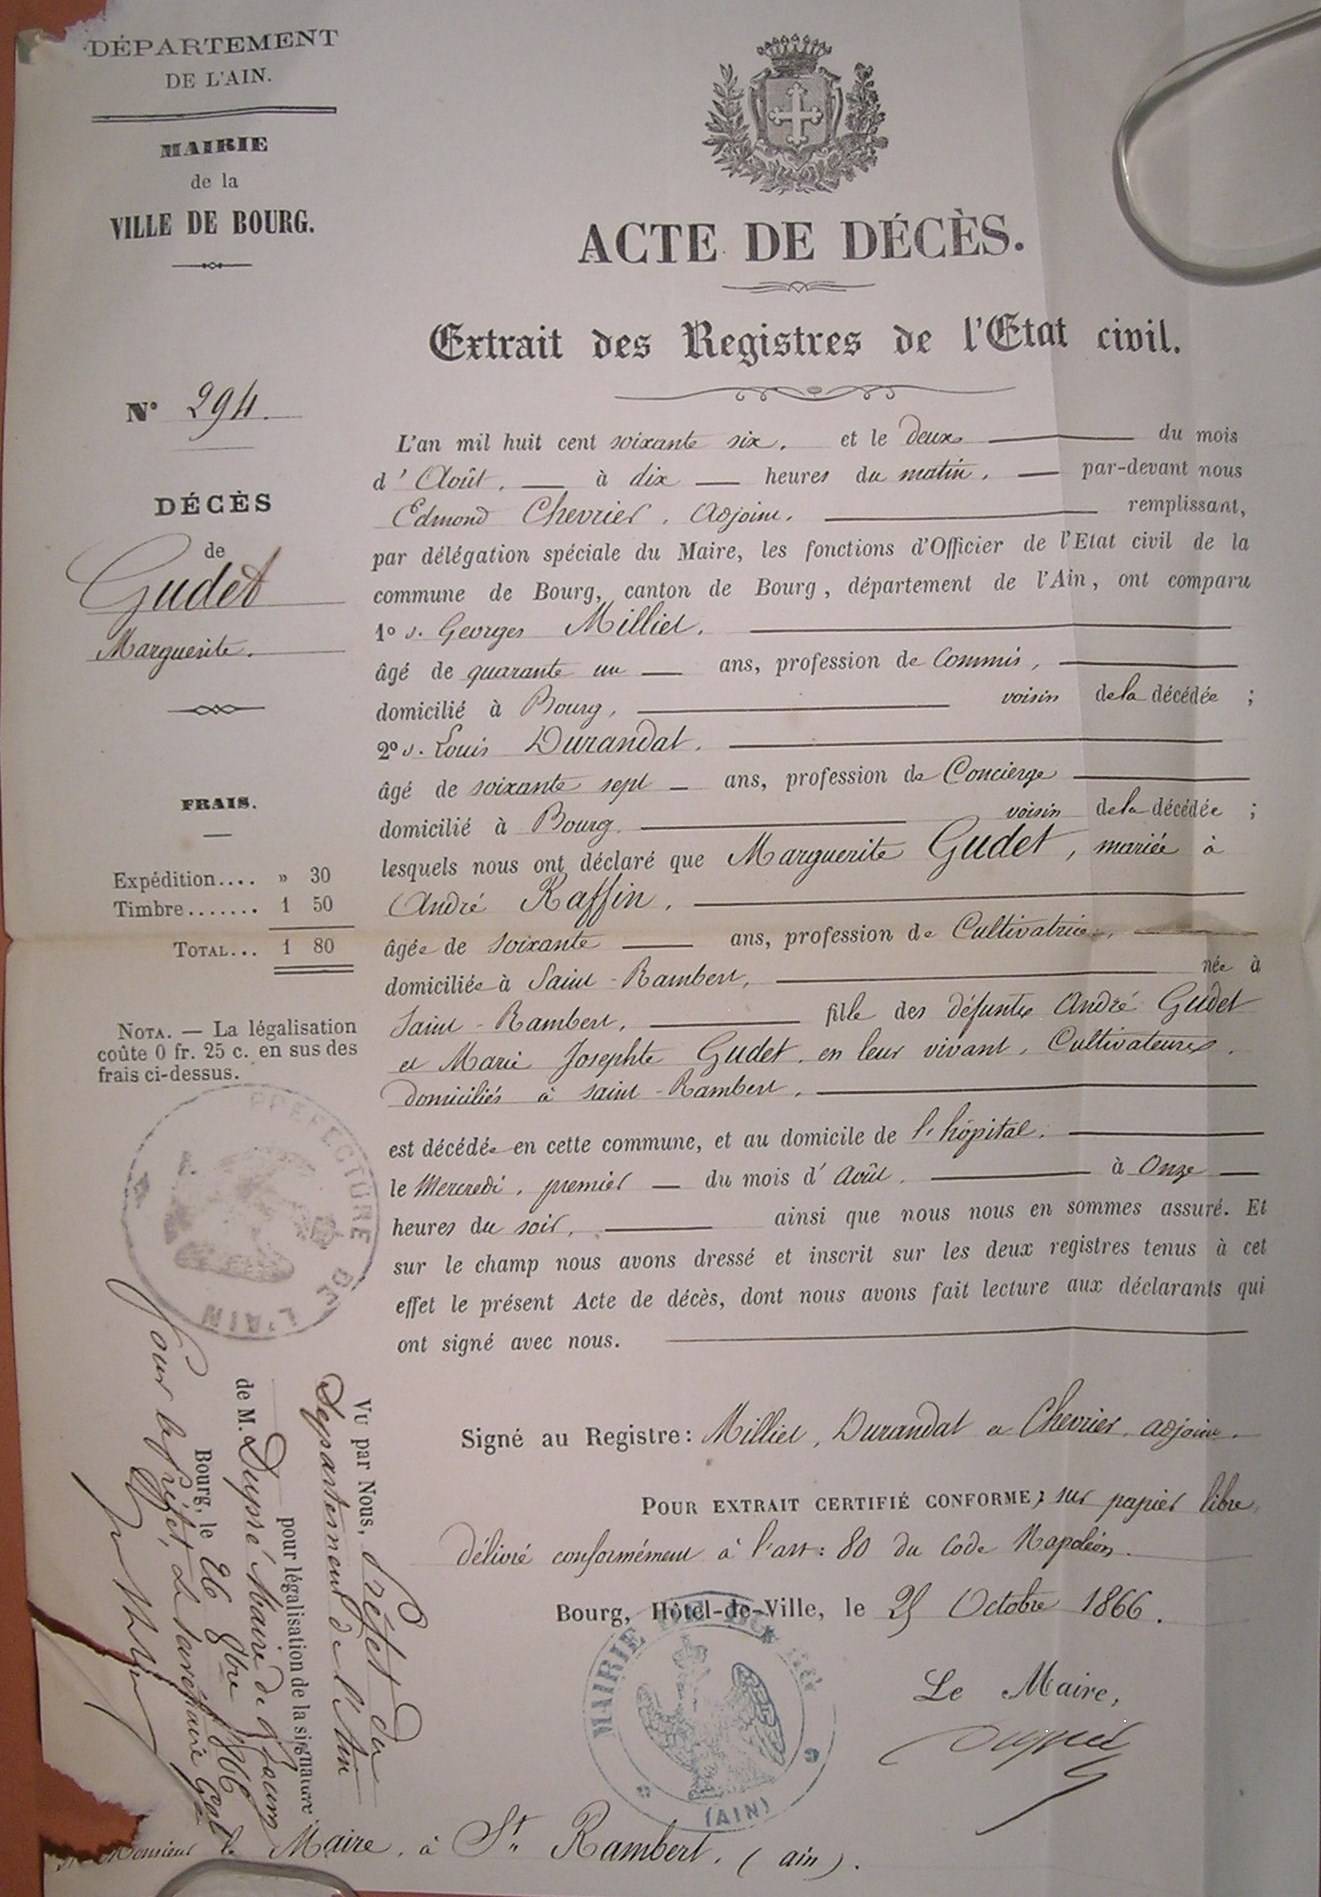 DÉPARTEMENT
DE L'AIN.
MAIRIE
de la
VILLE DE BOURG.
N° 294.
DÉCÈS
de
Gudet
Marguerite.
FRAIS.
Expédition.... » 30
Timbre....... 1 50
TOTAL... 1 80
NOTA. — La légalisation
coûte 0 fr. 25 c. en sus des
frais ci-dessus.
PREFECTURE DE L'AIN
ACTE DE DÉCÈS.
Extrait des Registres de l'Etat civil.
L'an mil huit cent soixante six, et le deux du mois
d'Août, à dix heures du matin, par-devant nous
Edmond Chevrier, adjoint, remplissant,
par délégation spéciale du Maire, les fonctions d'Officier de l'Etat civil de la
commune de Bourg, canton de Bourg, département de l'Ain, ont comparu
1° s. Georges Milliet,
âgé de quarante un ans, profession de Commis,
domicilié à Bourg, voisin de la décédée ;
2° s. Louis Durandat,
âgé de soixante sept ans, profession de Concierge
domicilié à Bourg, voisin de la décédée ;
lesquels nous ont déclaré que Marguerite Gudet, mariée à
André Raffin,
âgée de soixante ans, profession de Cultivatrice,
domiciliée à Saint-Rambert, née à
Saint-Rambert, fille des défunts André Gudet
et Marie Josephte Gudet, en leur vivant, Cultivateurs,
domiciliés à saint-Rambert,
est décédée en cette commune, et au domicile de l'hôpital,
le Mercredi, premier du mois d'Août, à Onze
heures du soir, ainsi que nous nous en sommes assuré. Et
sur le champ nous avons dressé et inscrit sur les deux registres tenus à cet
effet le présent Acte de décès, dont nous avons fait lecture aux déclarants qui
ont signé avec nous.
Signé au Registre: Milliet, Durandat et Chevrier, adjoint.
POUR EXTRAIT CERTIFIÉ CONFORME, sur papier libre,
délivré conformément à l'art: 80 du Code Napoléon.
Bourg, Hôtel-de-Ville, le 25 Octobre 1866.
Le Maire,
Dupré
MAIRIE DE BOURG
(AIN)
Vu par Nous, Préfet du
Département de l'Ain
pour légalisation de la signature
de M. Dupré Maire de Bourg
Bourg, le 26 8bre 1866
Pour le préfet, Le Secrétaire Gal
Monsieur le Maire, à St Rambert, (ain).